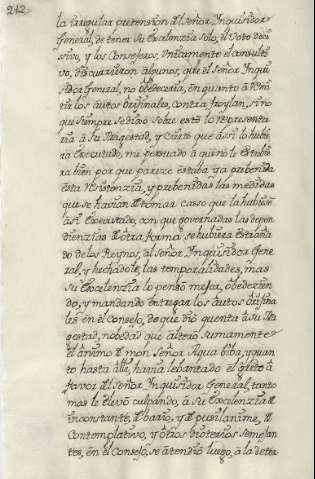 242
la irregular pretension del señor Inquisidor
General, de tener su Excelenzia solo, el Voto deci
sivo, y los Consejeros, Unicamente el consulti
vo, discurrieron algunos, que el señor Inqui
sidor General, no obedeceria, en quanto à remi
tir los autos originales, contra froylan, sino
que siempre se diò sobre esto lo representa
ria à su Magestad, y cierto que assi lo hubie
ra Executado, mi persuado à que no le estubie
ra bien por que pareze estaba ya prebenida
esta resistenzia, y prebenidas las medidas
que se havian de tomar casso que la hubiese
assi Executado, con que governadas las depen
dienzias de otra forma se hubiera Estraña
do de los Reynos, al señor Inquisidor Gene
ral, y hechadole, las temporalidades, mas
su Excelenzia lo penso mejor, obedezien
do, y mandando entregar los autos origina
les en el consejo, de que diò quenta à su Ma
gestad, nobedad que alterò sumamente
el animo de mon Señor Aqua biba, y quan
to hasta alli, havia lebantado el grito à
favor del señor Inquisidor General, tanto
mas le elevò culpando, à su Excelenzia de
inconstante, de bario, y de pusilanime, de
Contemplativo, y otros dicterios semejan
tes, en el Consejo, se atendio luego, à la deter